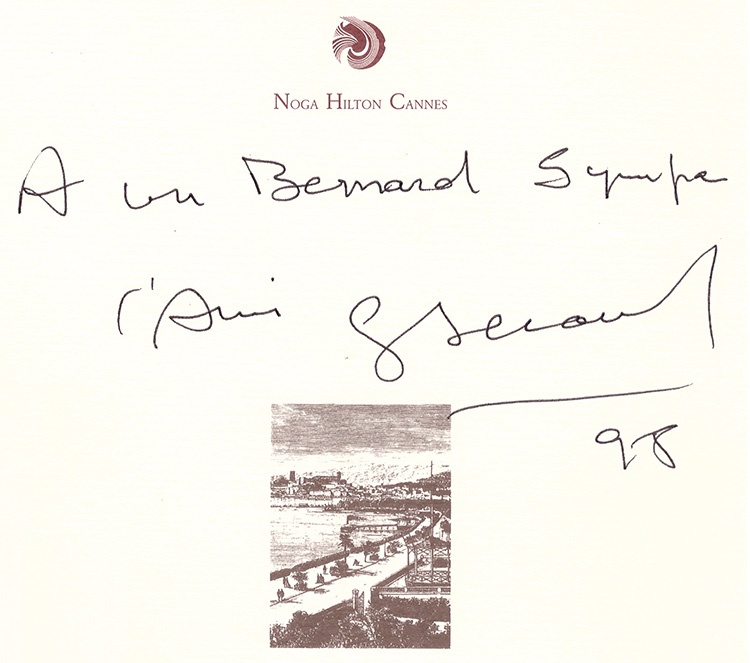 Noga Hilton Cannes
A un Bernard Sympa
l'Ami
98